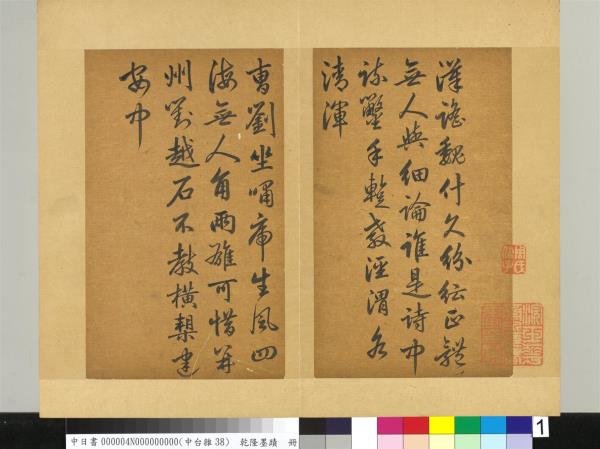 漢謠魏什久紛紜正體
無人與細論誰是詩中
疏鑿手蹔教涇渭各
清渾
曹劉坐嘯虎生風四
海無人角兩雄可惜并
州劉越石不教橫槊建
安中
中日書 000004N000000000(中台雜 38) 乾隆墨蹟 冊
1